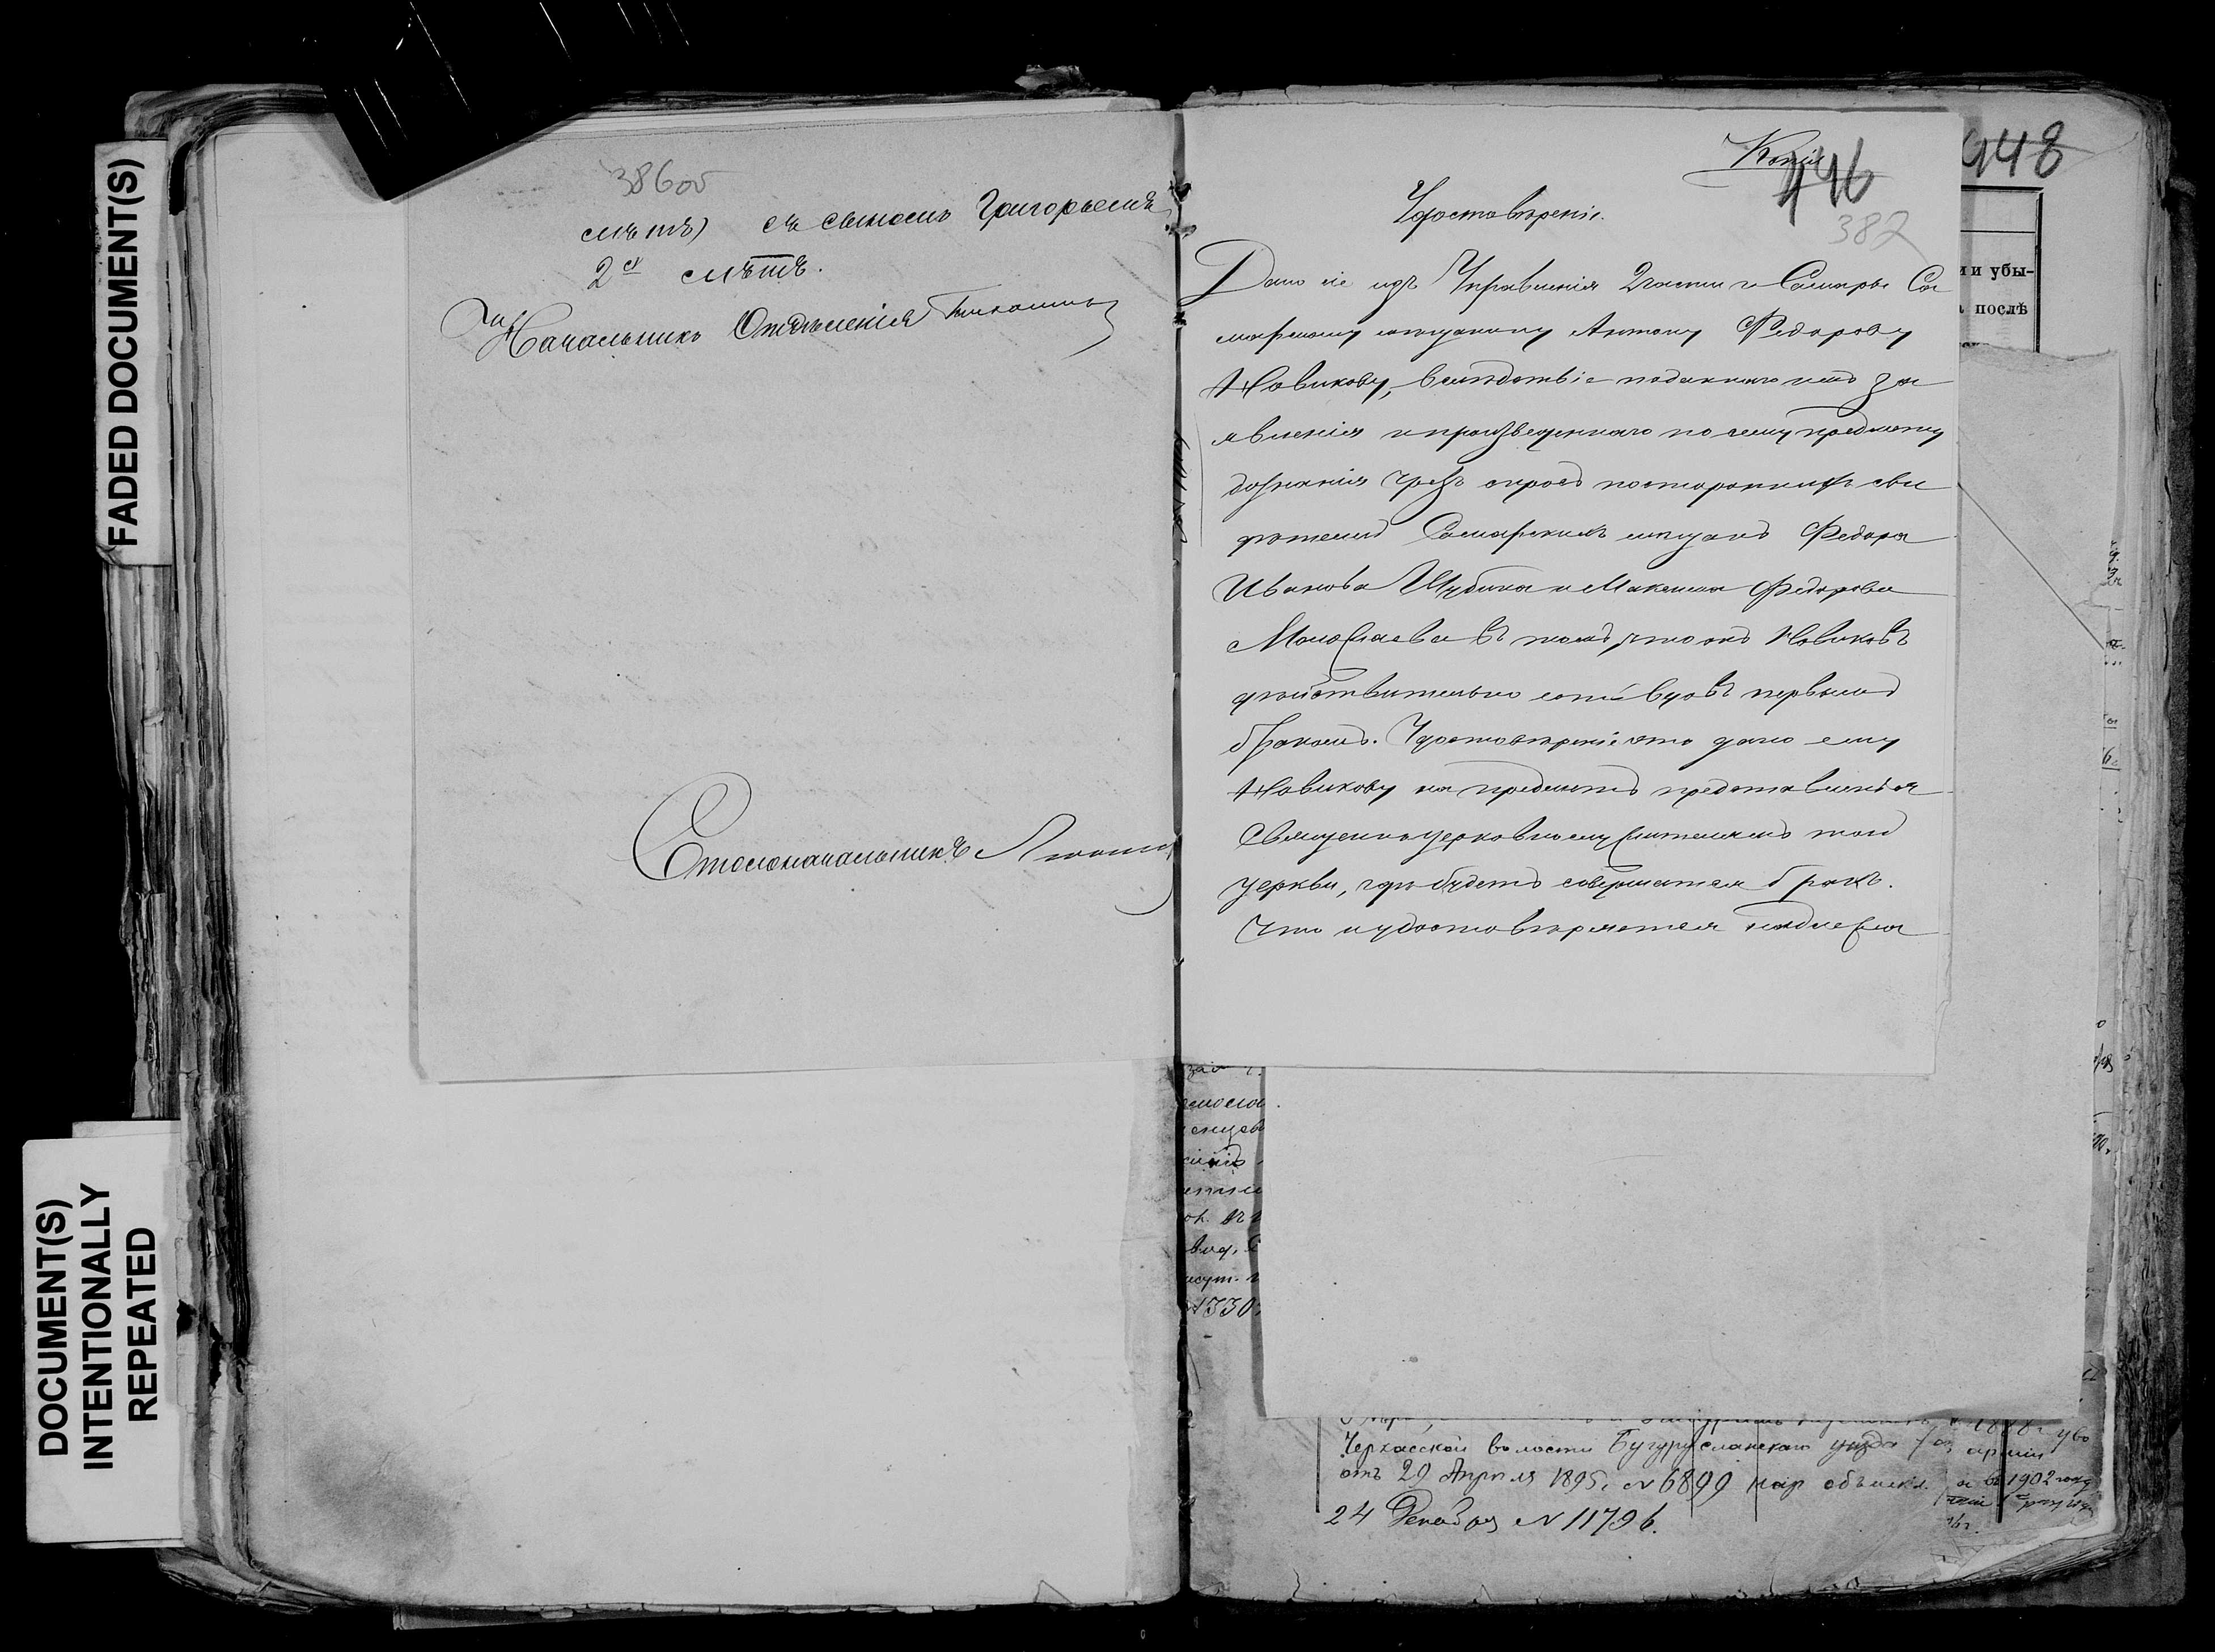 FADED DOCUMENT(S)
DOCUMENT(S)
INTENTIONALLY
REPEATED
386об
лѣтъ) съ сыномъ Григорьемъ
2х лѣтъ.
Начальникъ Отдѣленія
Столоначальникъ
Копія
446
448
382
Удостовѣреніе.
Дано сіе изъ Управленія 2 части г. Самары Са
марскому мѣщанину Антону Федорову
Новикову, вслѣдствіе поданнаго имъ за
явленія и произведеннаго по сему предмету
дознанія чрезъ спросъ постороннихъ сви
дѣтелей Самарскихъ мѣщанъ Федора
Иванова Шубина и Максима Федорова
въ томъ, что онъ Новиковъ
дѣйствительно есть вдовъ первымъ
бракомъ. Удостовѣреніе это дано ему
Новикову на предметъ представленія
Священноцерковнослужителямъ той
церкви, гдѣ будетъ совершаться бракъ.
Что и удостовѣряется надлежа
ии убы-
послѣ
330
Черкасской волости Бугурусланскаго уѣзда
отъ 29 Апрѣля 1895 г. № 6899
арміи
1902 году
24 Декабря № 11796.